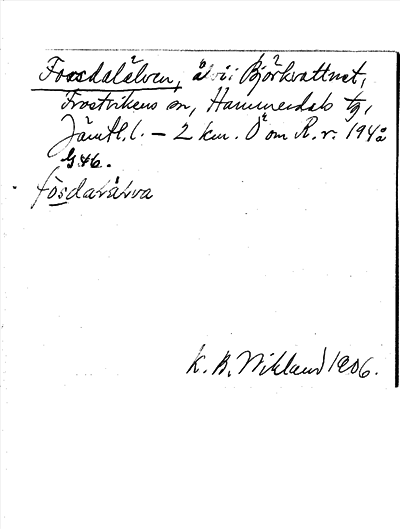 Fossdalälven, älv i Björkvattnet,
Frostvikens sn, Hammerdals tg,
Jämtl. l. – 2 km. O om R. r. 194 a
G46.
fòsdalälva
K. B. Wiklund 1906.